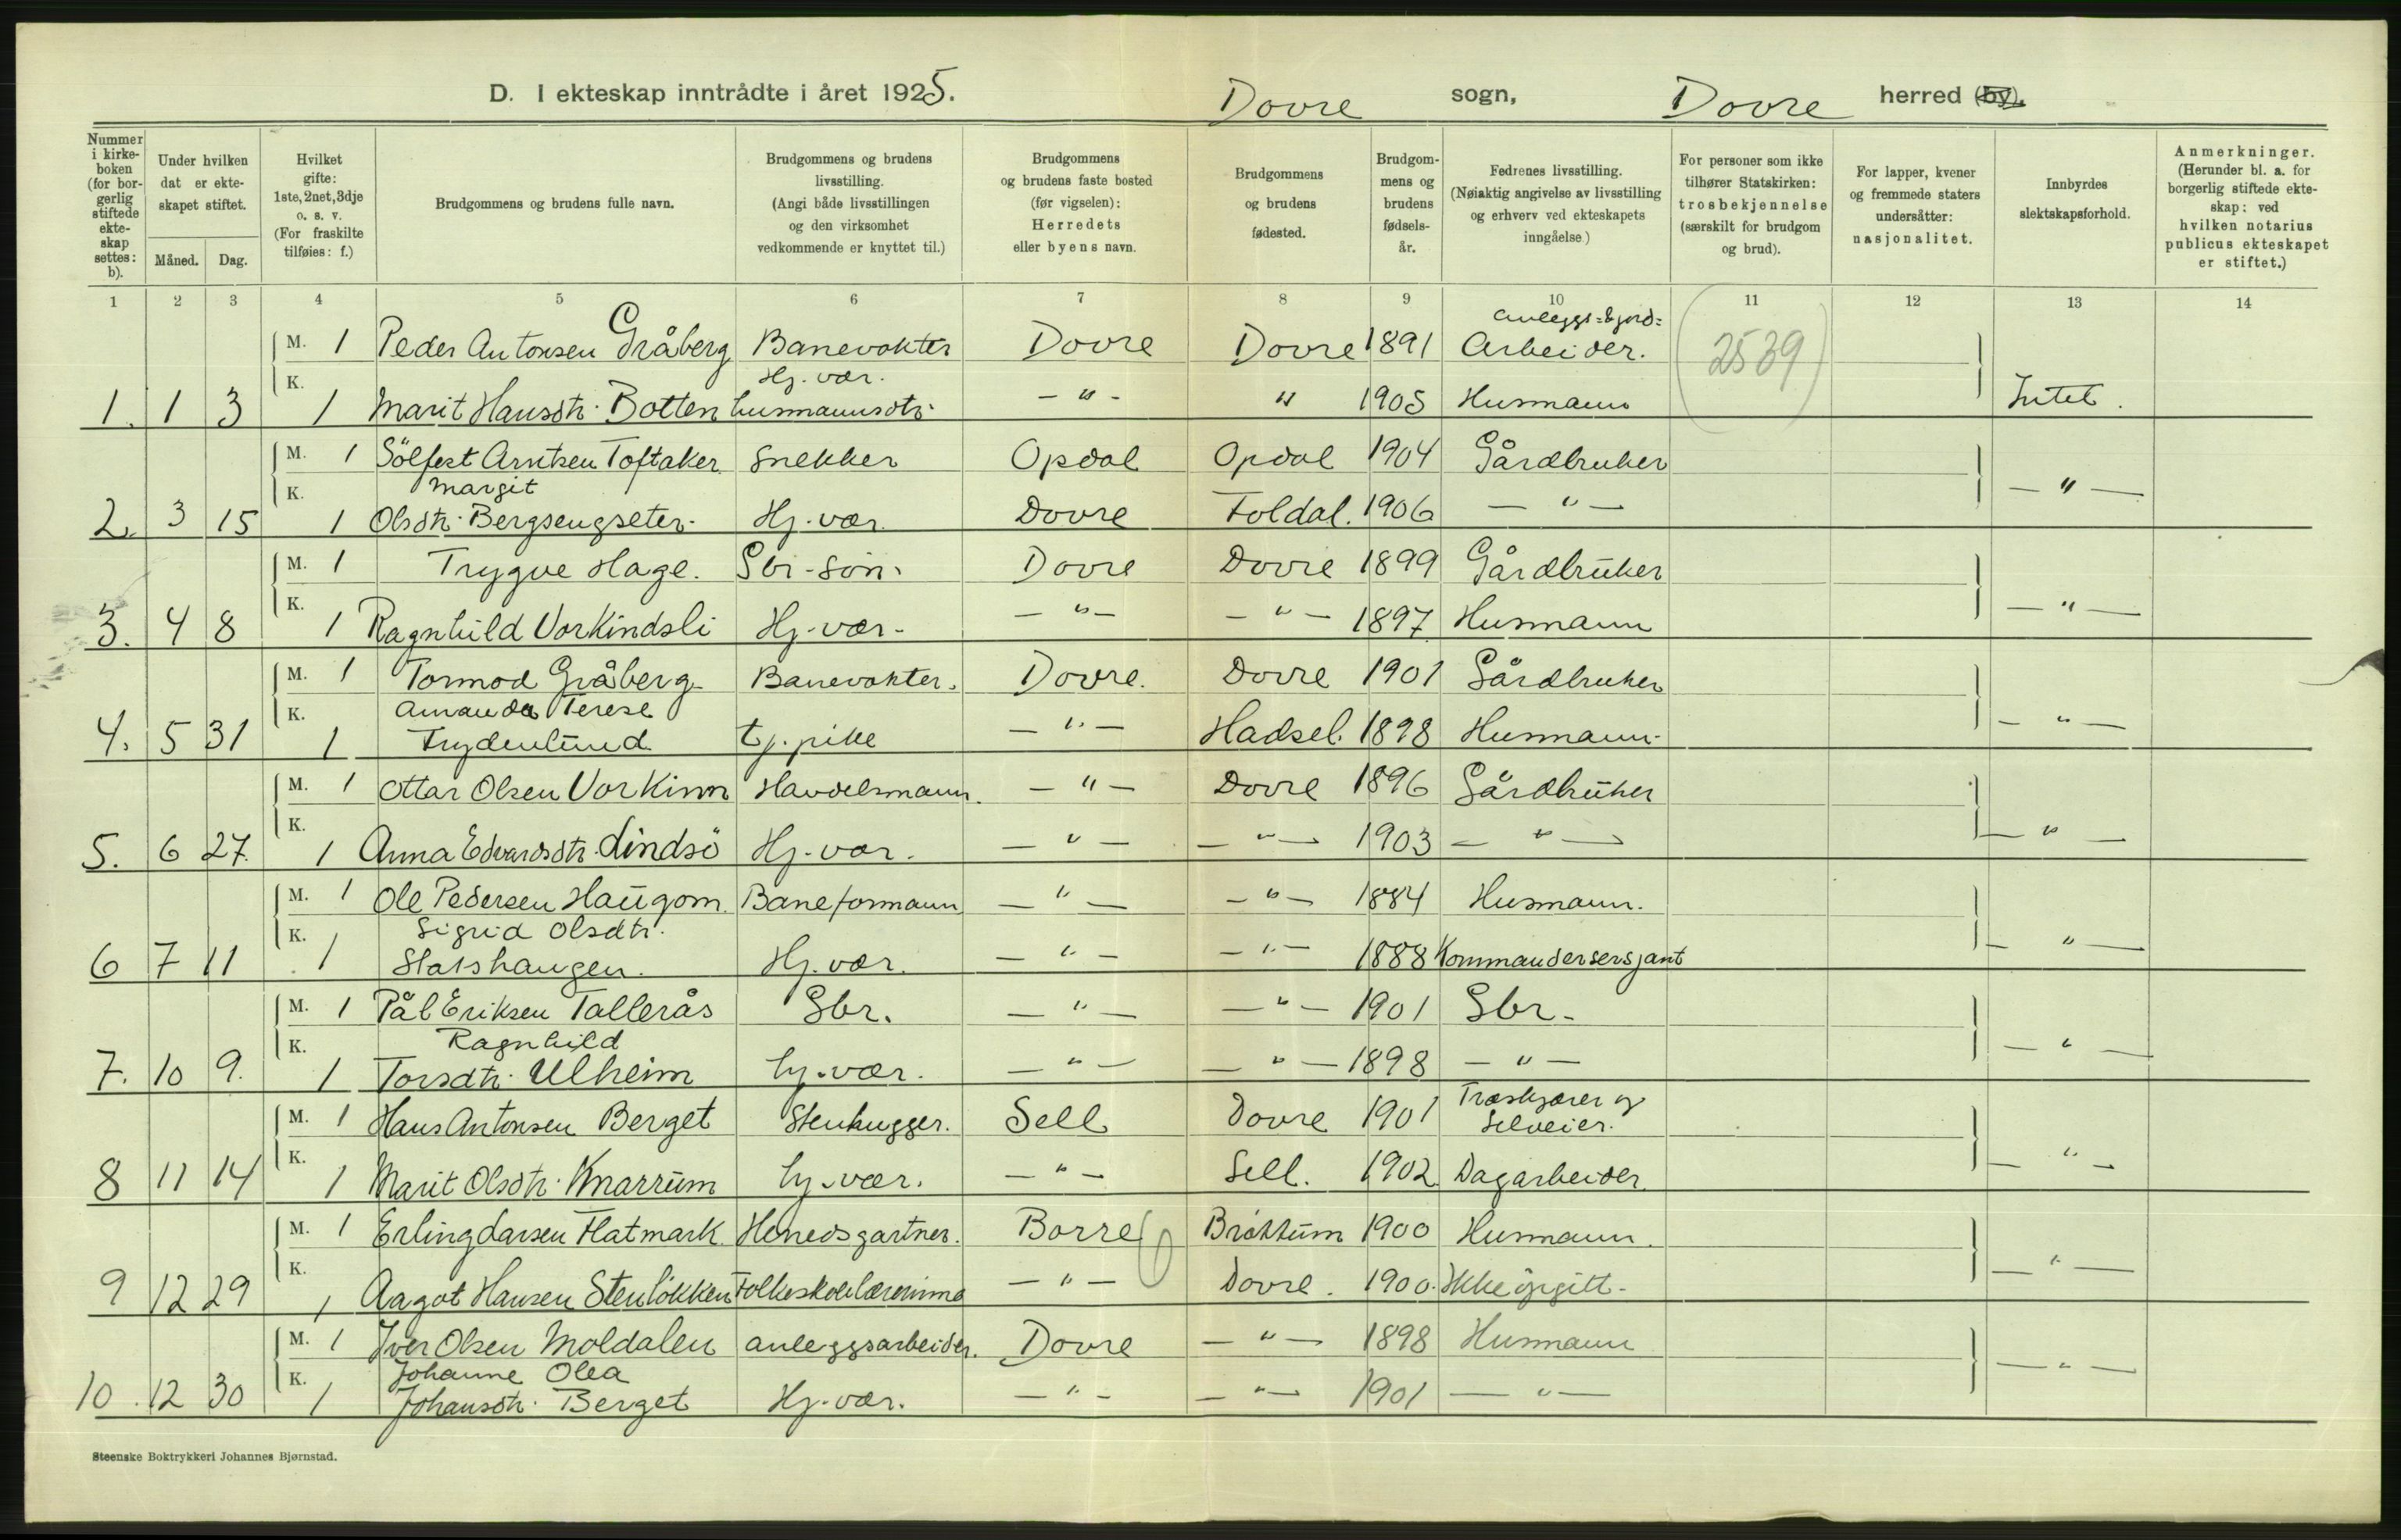 D. I ekteskap inntrådte i året 1925. Dovre sogn, Dovre herred (by).
Nummer i kirkeboken (for borgerlig stiftede ekteskap settes: b).
Under hvilken dat er ekteskapet stiftet.
Måned. Dag.
Hvilket gifte: 1ste, 2net, 3dje o. s. v. (For fraskilte tilføies: f.)
Brudgommens og brudens fulle navn.
Brudgommens og brudens livsstilling. (Angi både livsstillingen og den virksomhet vedkommende er knyttet til.)
Brudgommens og brudens faste bosted (før vigselen): Herredets eller byens navn.
Brudgommens og brudens fødested.
Brudgommens og brudens fødselsår.
Fedrenes livsstilling. (Nøiaktig angivelse av livsstilling og erhverv ved ekteskapets inngåelse)
For personer som ikke tilhører Statskirken: trosbekjennelse (særskilt for brudgom og brud).
For lapper, kvener og fremmede staters undersåtter: nasjonalitet.
Innbyrdes slektskapsforhold.
Anmerkninger. (Herunder bl. a. for borgerlig stiftede ekteskap: ved hvilken notarius publicus ekteskapet er stiftet.)
1 2 3 4 5 6 7 8 9 10 11 12 13 14
M. 1 Peder Antonsen Gråberg Banevokter Dovre Dovre 1891 Anleggs- & jord- Arbeider. (2539)
1. 1 3 K. 1 Marit Hansdtr. Botten Hj. vær. husmannsdtr. - " - " 1905 Husmann Intet.
M. 1 Sölfest Arntsen Toftaker Snekker Opdal Opdal 1904 Gårdbruker
2. 3 15 K. 1 Margit Olsdtr. Bergsengseter. Hj. vær. Dovre Foldal. 1906 — " — — " —
M. 1 Trygve Hage. Gbr-sön. Dovre Dovre 1899 Gårdbruker
3. 4 8 K. 1 Ragnhild Vorkindsli Hj-vær. — " — — " — 1897 Husmann — " —
M. 1 Tormod Gråberg Banevokter. Dovre. Dovre 1901 Gårdbruker
4. 5 31 K. 1 Amanda Terese Trydenlund tj. pike — " — Hadsel. 1898 Husmann — " —
M. 1 Ottar Olsen Vorkinn Handelsmann. — " — Dovre 1896 Gårdbruker
5. 6 27. K. 1 Anna Edvardsdtr. Lindsö Hj-vær. — " — — " — 1903 — " — — " —
M. 1 Ole Pedersen Haugom. Baneformann — " — — " — 1884 Husmann.
6 7 11 K. 1 Sigrid Olsdtr. Slakshaugen. Hj. vær. — " — — " — 1888 Kommandersersjant — " —
M. 1 Pål Eriksen Tallerås Gbr. — " — — " — 1901 Gbr.
7. 10 9. K. 1 Ragnhild Torsdtr. Ulheim hj-vær. — " — — " — 1898 — " — — " —
M. 1 Hans Antonsen Berget Stenhugger. Sell Dovre 1901 Træskjærer og Selveier.
8 11 14 K. 1 Marit Olsdtr. Knarrum hj-vær. — " — Sell. 1902. Dagarbeider. — " —
M. 1 Erling Larsen Flatmark. Herredsgartner. Borre Bröttum 1900 Husmann.
9 12 29 K. 1 Aagot Hansen Stenlökken Folkeskolelærerinne — " — Dovre. 1900. Ikke opgitt. — " —
M. 1 Iver Olsen Moldalen anleggsarbeider. Dovre — " — 1898 Husmann
10. 12 30 K. 1 Johanne Olea Johansdtr. Berget Hj-vær. — " — — " — 1901 — " — — " —
Steenske Boktrykkeri Johannes Bjørnstad.